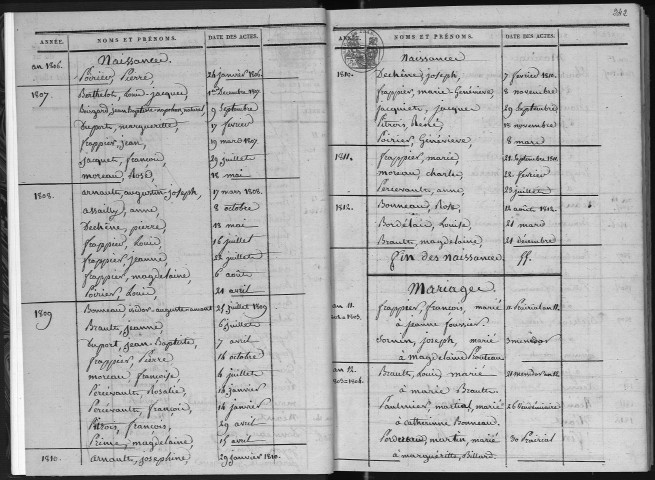 ANNÉE. NOMS ET PRÉNOMS. DATE DES ACTES.
an 1806. Naissances.
Poirier, Pierre, 24 janvier 1806.
1807. Berthelot, Louis jacques 1er Décembre 1807.
9 Septembre
Duport, marguerette, 17 fevrier
frappier, jean, 19 mars 1807
jacquet, francois, 29 juillet
moreau, Rose, 12 mai
1808. arnault, augustin joseph, 17 mars 1808.
assailly, anne, 8 octobre
Dechêne, pierre, 18 mai
frappier, Louis, 16 juillet
frappier, jeanne, 22 juillet
frappier, magdelaine, 6 août
Poirier, Louis, 24 avril
1809 Bonneau 25 juillet 1809
Brault, jeanne, 6 juillet
Duport, jean Baptiste, 7 avril
frappier, Pierre 16 octobre
moreau, françoise, 6 juillet
Percevault, Rosalie, 16 janvier
Percevault, francois, 16 janvier
Pitrois, francois, 29 avril
Prime, magdelaine, 15 avril
1810. arnault, josephine, 29 janvier 1810.
242
ANNÉE. NOMS ET PRÉNOMS. DATE DES ACTES.
Naissances
1810. Dechêne, joseph, 7 fevrier 1810.
frappier, marie Géneviève, 8 novembre
jacquiet, jacque 29 Septembre
Pitrois, Réné, 18 novembre
Poirier, Géneviève, 8 mars
1811. frappier, marie, 21 Septembre 1811.
moreau, charles, 22 fevrier
Percevault, anne, 23 juillet
1812. Bonneau, Rose, 12 août 1812.
Bordelais, Louise, 21 mars
Brault, magdelaine, 21 décembre
fin des naissances ff.
Mariages
an 11. frappier, françois, marié
1802 à 1803. à jeanne
joseph, marié
à magdelaine
an 12. Brault, Louis, marié
1803 à 1804. à marie Brault
martial, marié 26 Vendémiaire
à catherinne Bonneau.
martin, marié 30 Prairial
à margueritte, Billard.